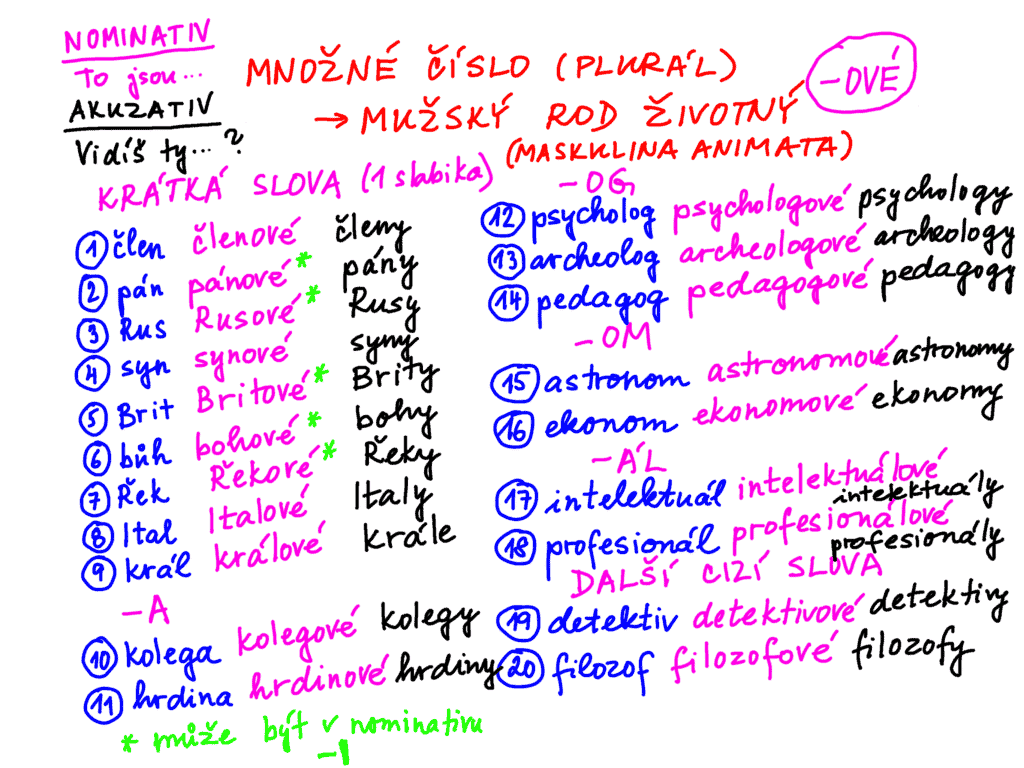 NOMINATIV
To jsou...
AKUZATIV
Vidíš ty... ?
MNOŽNÉ ČÍSLO (PLURÁL)
→ MUŽSKÝ ROD ŽIVOTNÝ
(MASKULINA ANIMATA)
-OVÉ
KRÁTKÁ SLOVA (1 slabika)
1 člen členové členy
2 pán pánové* pány
3 Rus Rusové* Rusy
4 syn synové syny
5 Brit Britové* Brity
6 bůh bohové* bohy
7 Řek Řekové* Řeky
8 Ital Italové Italy
9 král králové krále
-A
10 kolega kolegové kolegy
11 hrdina hrdinové hrdiny
* může být v nominativu
-I
-OG
12 psycholog psychologové psychology
13 archeolog archeologové archeology
14 pedagog pedagogové pedagogy
-OM
15 astronom astronomové astronomy
16 ekonom ekonomové ekonomy
-ÁL
17 intelektuál intelektuálové
intelektuály
18 profesionál profesionálové
profesionály
DALŠÍ CIZÍ SLOVA
19 detektiv detektivové detektivy
20 filozof filozofové filozofy